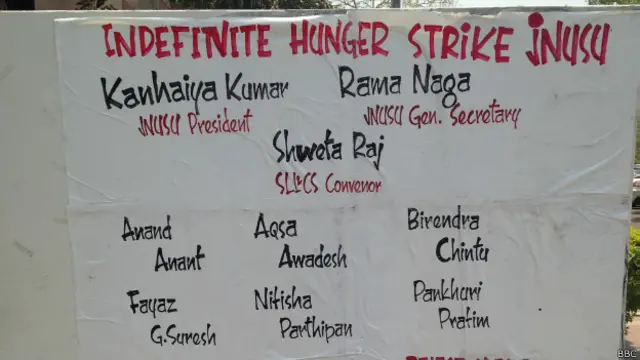 INDEFINITE HUNGER STRIKE JNUSU
Kanhaiya Kumar
JNUSU President
Rama Naga
JNUSU Gen. Secretary
Shweta Raj
SLL&CS Convenor
Anand
Anant
Aqsa
Awadesh
Birendra
Chintu
Fayaz
G.Suresh
Nitisha
Parthipan
Pankhuri
Pratim
BBC